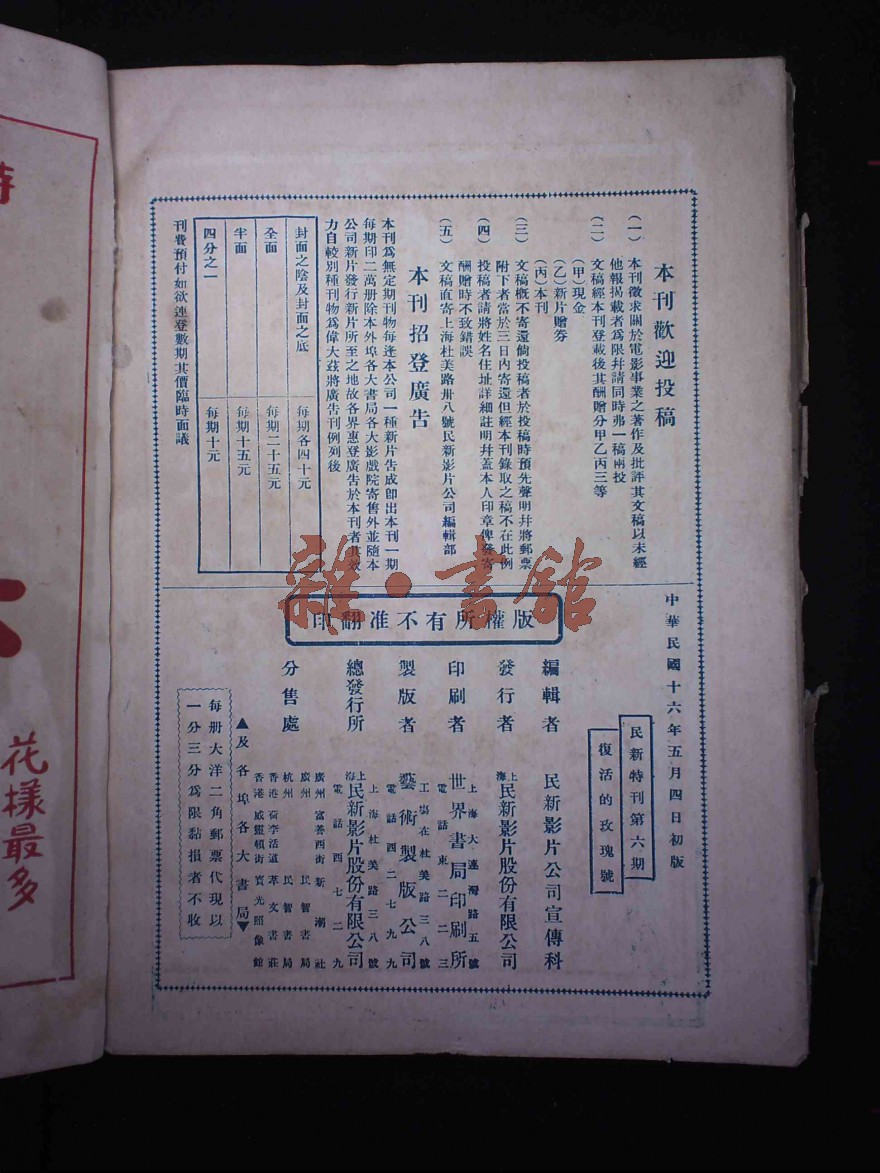 本刊歡迎投稿
(一) 本刊徵求關於電影事業之著作及批評其文稿以未經
他報揭載者爲限幷請同時弗一稿兩投
(二) 文稿經本刊登載後其酬贈分甲乙丙三等
(甲)現金
(乙)新片贈券
(丙)本刊
(三) 文稿槪不寄還倘投稿者於投稿時預先聲明幷將郵票
附下者當於三日內寄還但經本刊錄取之稿不在此例
(四) 投稿者請將姓名住址詳細註明幷蓋本人印章俾發寄
酬贈時不致錯誤
(五) 文稿直寄上海杜美路卅八號民新影片公司編輯部
本刊招登廣告
本刊爲無定期刊物每逢本公司一種新片吿成卽出本刊一期
每期印二萬册除本外埠各大書局各大影戲院寄售外並隨本
公司新片發行新片所至之地故各界惠登廣告於本刊者其效
力自較別種刊物爲偉大茲將廣告刊例列後
封面之陰及封面之底 每期各四十元
全面 每期二十五元
半面 每期十五元
四分之一 每期十元
刊費預付如欲連登數期其價臨時面議
中華民國十六年五月四日初版
民新特刊第六期
復活的玫瑰號
版權所有不准翻印
編輯者 民新影片公司宣傳科
發行者 上海民新影片股份有限公司
上海大連灣路五號
印刷者 世界書局印刷所
電話東二二三
工塲在杜美路三八號
製版者 藝術製版公司
電話四二七九九
上海杜美路三八號
總發行所 上海民新影片股份有限公司
電話四七二九
分售處
廣州 富善西街新潮社
廣州 民智書局
杭州 民智書局
香港荷李活道萃文書莊
香港威靈頓街寳光照像館
▲及各埠各大書局▼
每册大洋二角郵票代現以
一分三分爲限黏損者不收
花樣最多
雜·書館